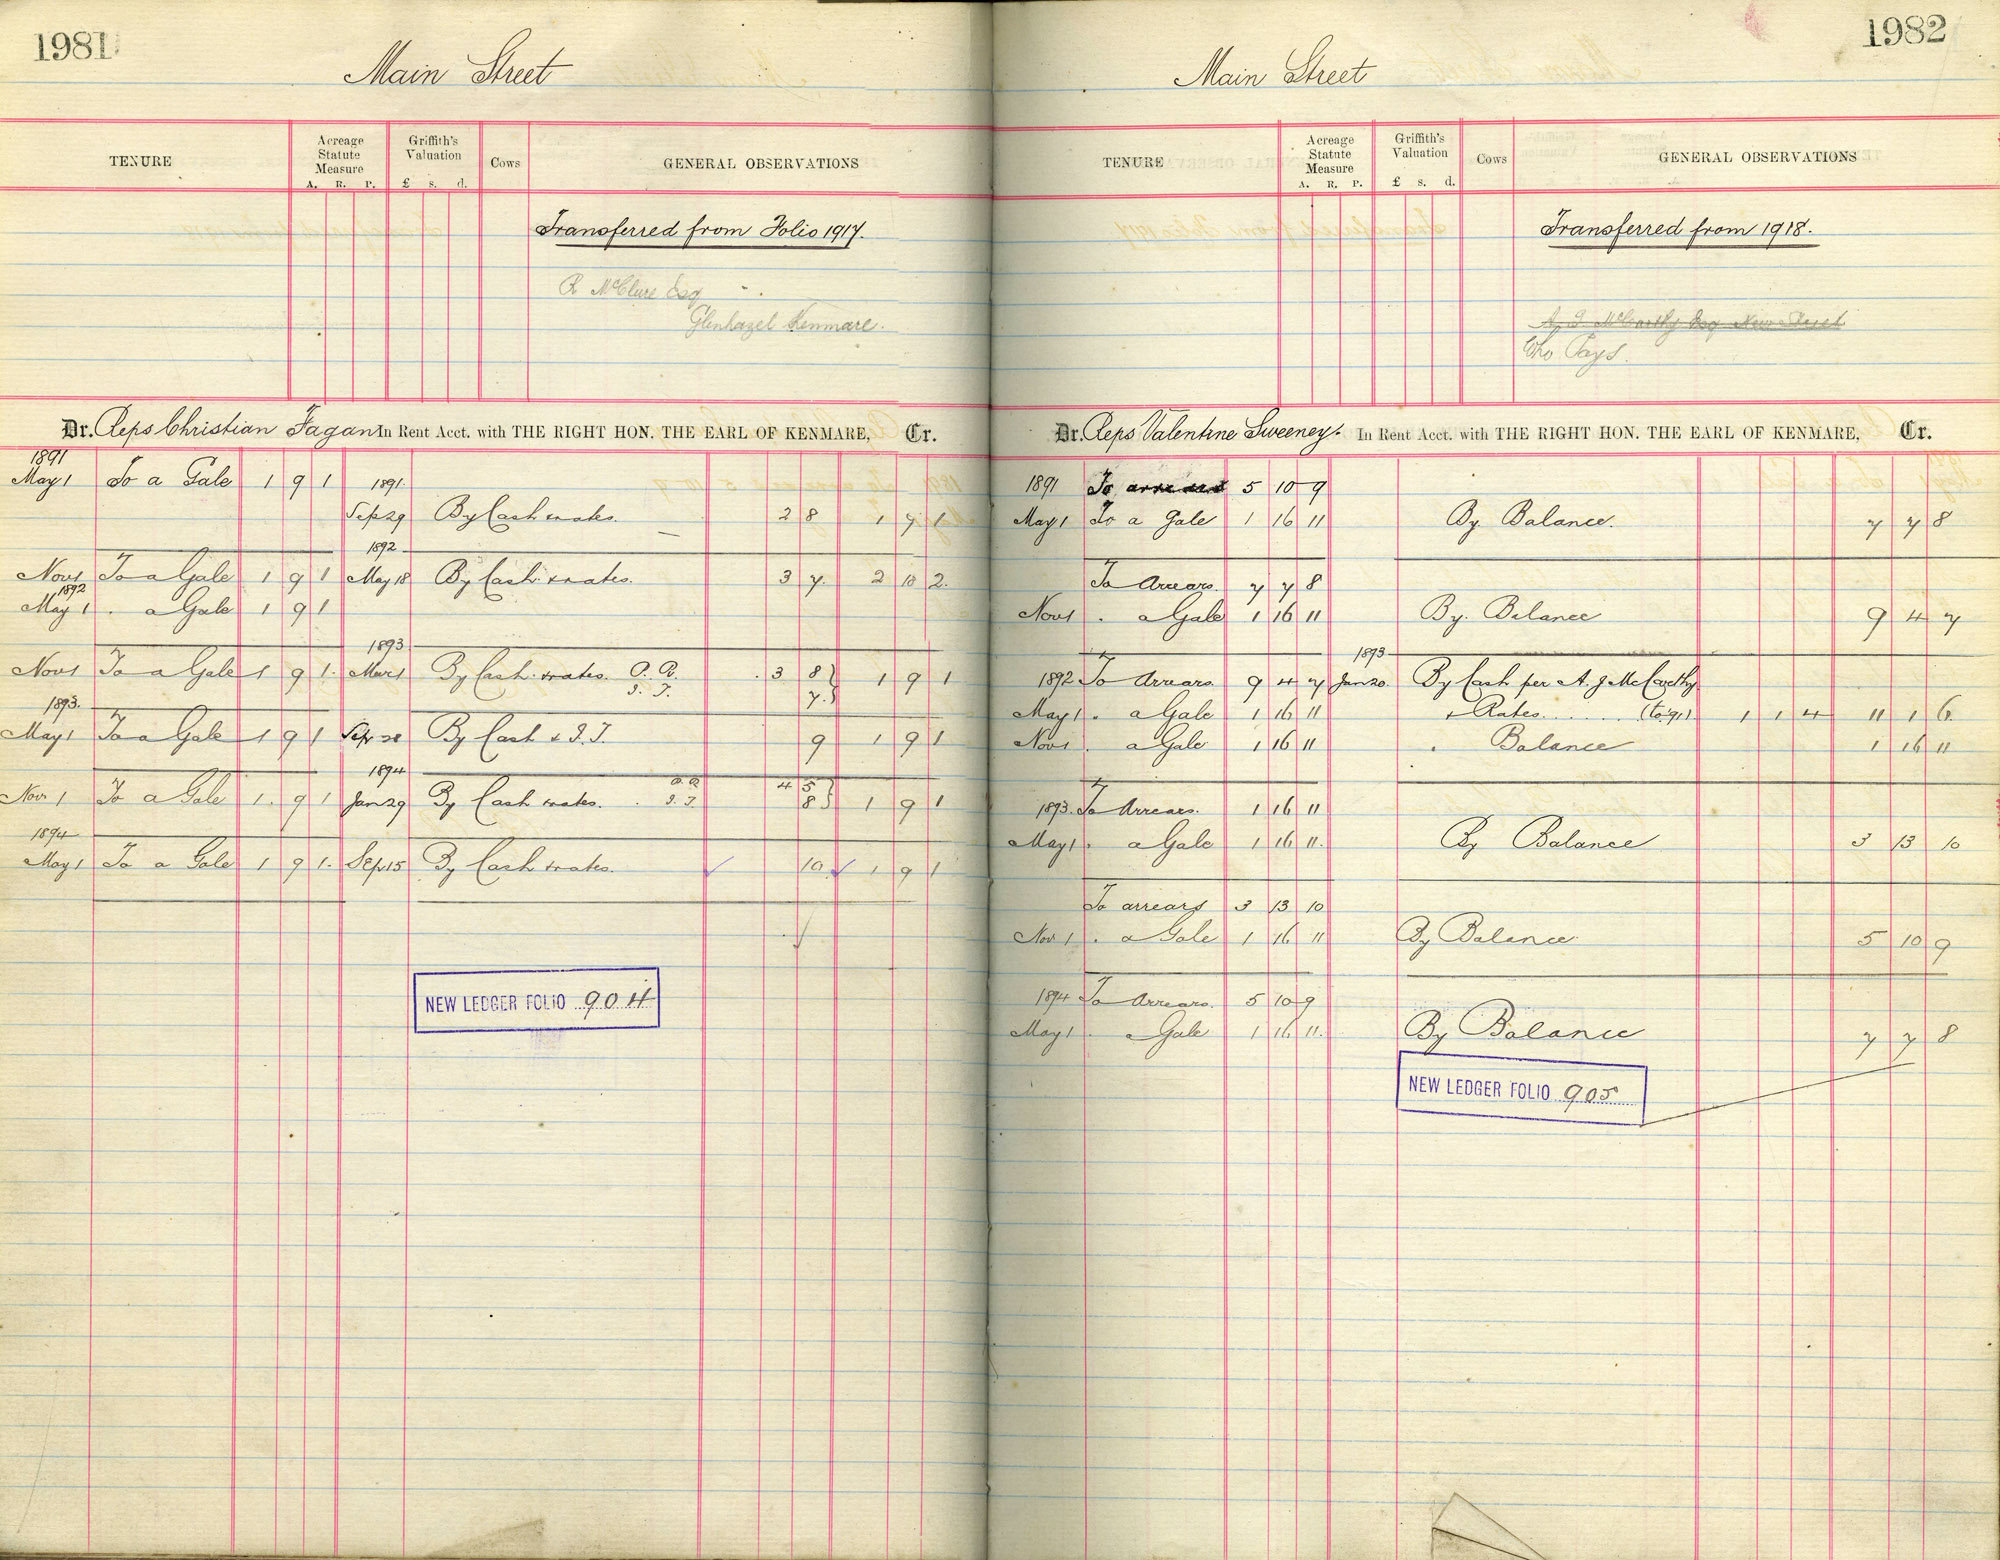 1981
Main Street
TENURE
Acreage Statute Measure
A. R. P.
Griffith's Valuation
£ s. d.
Cows
GENERAL OBSERVATIONS
Transferred from Folio 1917.
R McClure Esq
Glenhazel Kenmare.
Dr. Reps Christian Fagan In Rent Acct. with THE RIGHT HON. THE EARL OF KENMARE, Cr.
1891
May 1 To a Gale 1 9 1 1891.
Sep 29 By Cash & rates. 2 8 1 9 1
1892
Nov 1 To a Gale 1 9 1 May 18 By Cash & rates. 3 7. 2 18 2.
1892
May 1 . a Gale 1 9 1
1893
Nov 1 To a Gale 1 9 1. Mar 1 By Cash & rates. P. R. 3 8
I. T. 7.
1 9 1
1893.
May 1 To a Gale 1 9 1 Sep 28 By Cash & I.T. 9 1 9 1
1894
Nov 1 To a Gale 1. 9 1 Jan 29 By Cash & rates. P. R. 4 5
I. T. 8
1 9 1
1894
May 1 To a Gale 1 9 1. Sep 15 By Cash & rates. 10. 1 9 1
NEW LEDGER FOLIO 904
1982
Main Street
TENURE
Acreage Statute Measure
A. R. P.
Griffith's Valuation
£ s. d.
Cows
GENERAL OBSERVATIONS
Transferred from 1918.
A J McCarthy Esq New Street
Who Pays.
Dr. Reps Valentine Sweeney. In Rent Acct. with THE RIGHT HON. THE EARL OF KENMARE, Cr.
1891 To arrears 5 10 9
May 1 To a Gale 1 16 11 By Balance. 7 7 8
To Arrears. 7 7 8
Nov 1 . a Gale 1 16 11 By. Balance 9 4 7
1893
1892 To Arrears. 9 4 7 Jan 20. By Cash per A. J McCarthy
May 1 . a Gale 1 16 11 & Rates. (to '91) 1 1 4 11 1 6.
Nov 1 . a Gale 1 16 11 . Balance 1 16 11
1893. To Arrears. 1 16 11
May 1 . a Gale 1 16 11. By Balance 3 13 10
To arrears 3 13 10
Nov 1 . a Gale 1 16 11 By Balance 5 10 9
1894 To Arrears. 5 10 9
May 1 . Gale 1 16 11. By Balance 7 7 8
NEW LEDGER FOLIO 905